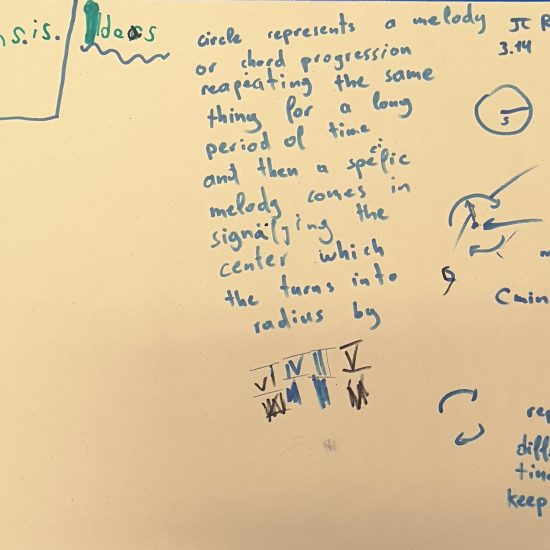 s.is.
Ideas
circle represents a melody
or chord progression
reapeating the same
thing for a long
period of time
and then a speific
ci
melody comes in
signalying the
center which
the turns into
radius by
VI IV II V
π
3.14
5
Cmin
rep
diff
keep